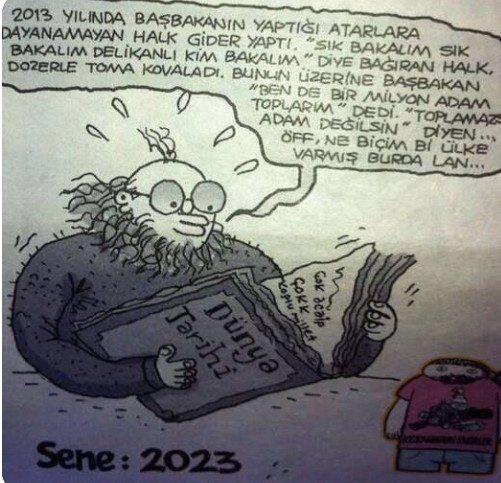 2013 YILINDA BAŞBAKANIN YAPTIĞI ATARLARA
DAYANAMAYAN HALK GİDER YAPTI. "SIK BAKALIM SIK
BAKALIM DELİKANLI KİM BAKALIM." DİYE BAĞIRAN HALK,
DOZERLE TOMA KOVALADI. BUNUN ÜZERİNE BAŞBAKAN
"BEN DE BİR MİLYON ADAM
TOPLARIM" DEDİ. "TOPLAMAZS
ADAM DEĞİLSİN" DİYEN...
ÖFF, NE BİÇİM Bİ ÜLKE
VARMIŞ BURDA LAN...
Çok acaip
Çokk
Dünya
Tarihi
Sene: 2023